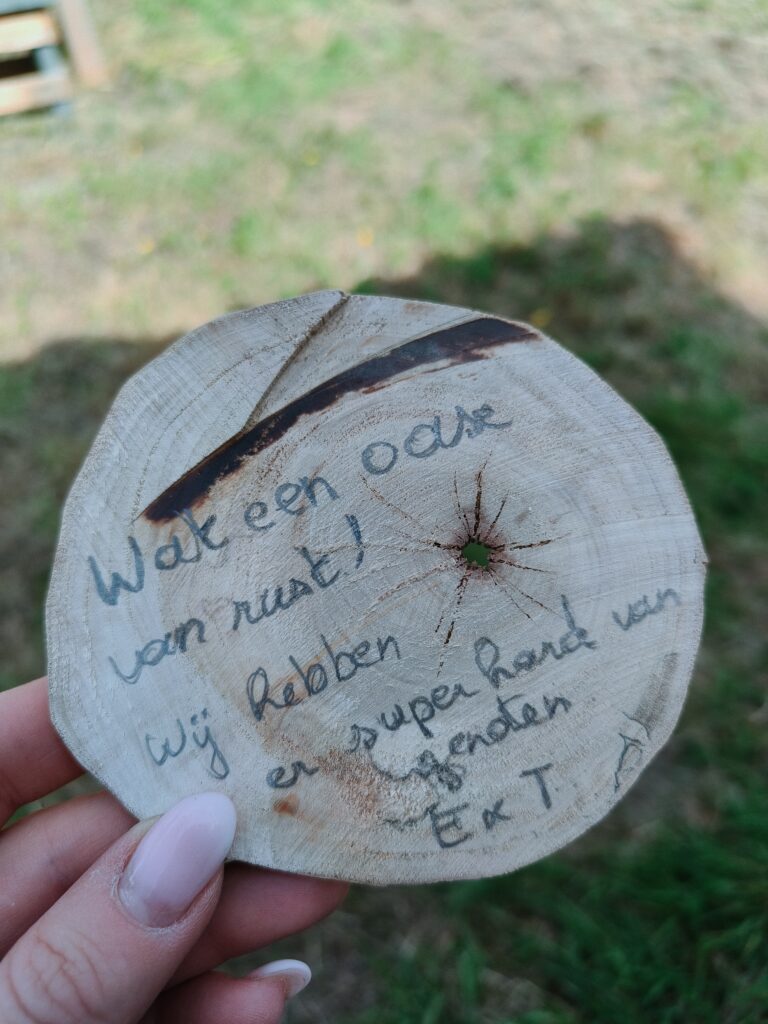 Wat een oase
van rust!
Wij hebben
er super hard van
genoten
E x T